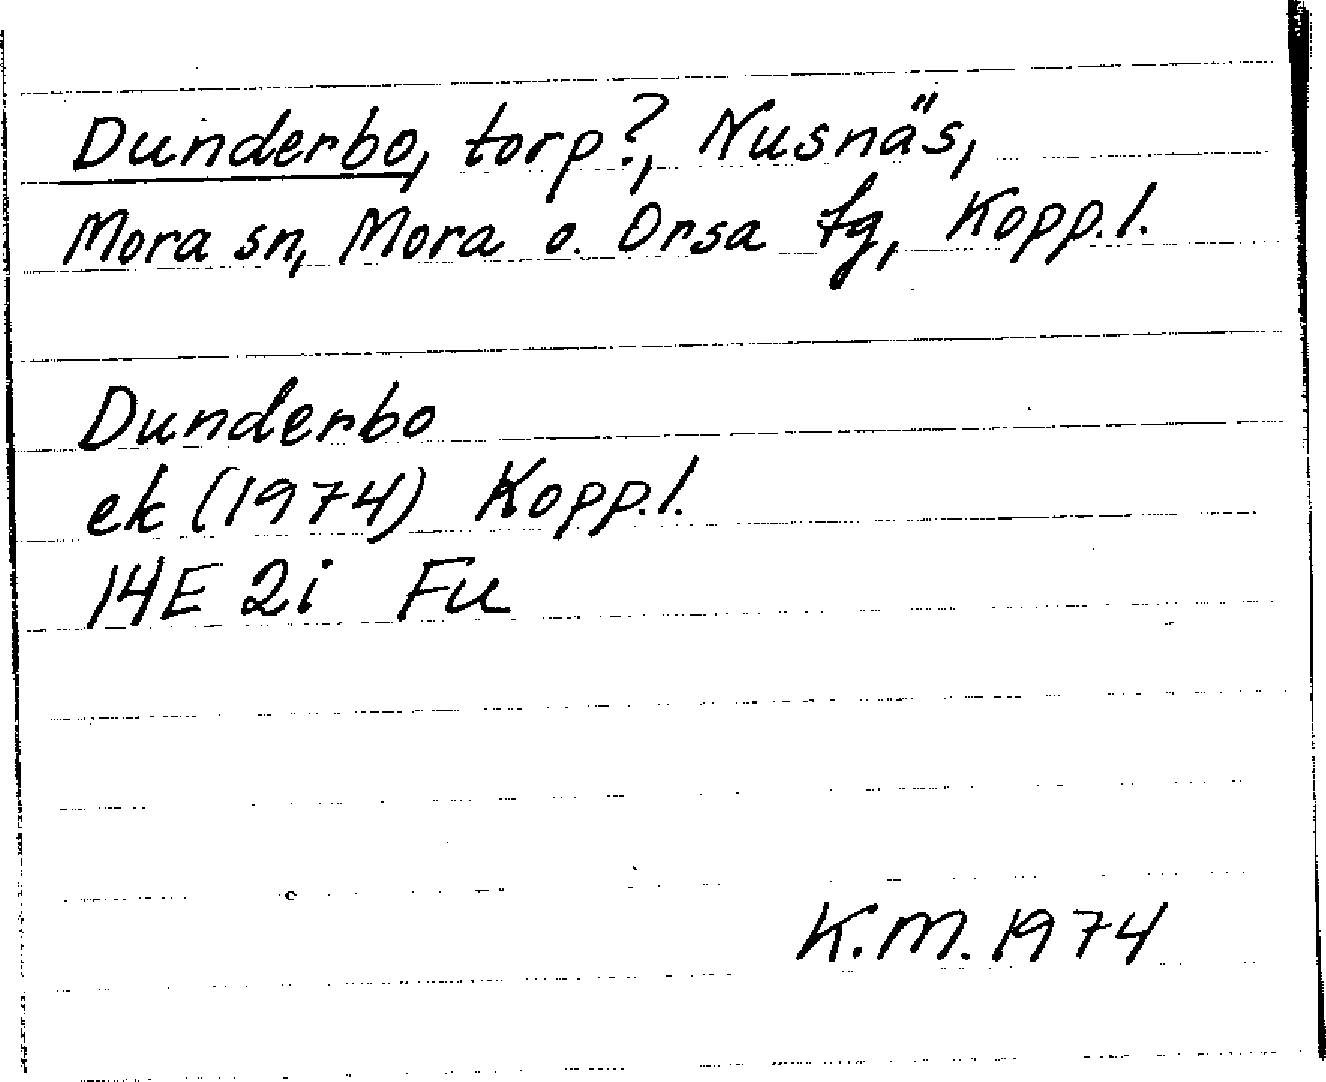 Dunderbo, torp?, Nusnäs,
Mora sn, Mora o. Orsa tg, Kopp.l.
Dunderbo
ek (1974) Kopp.l.
14E 2i Fu
K.M. 1974